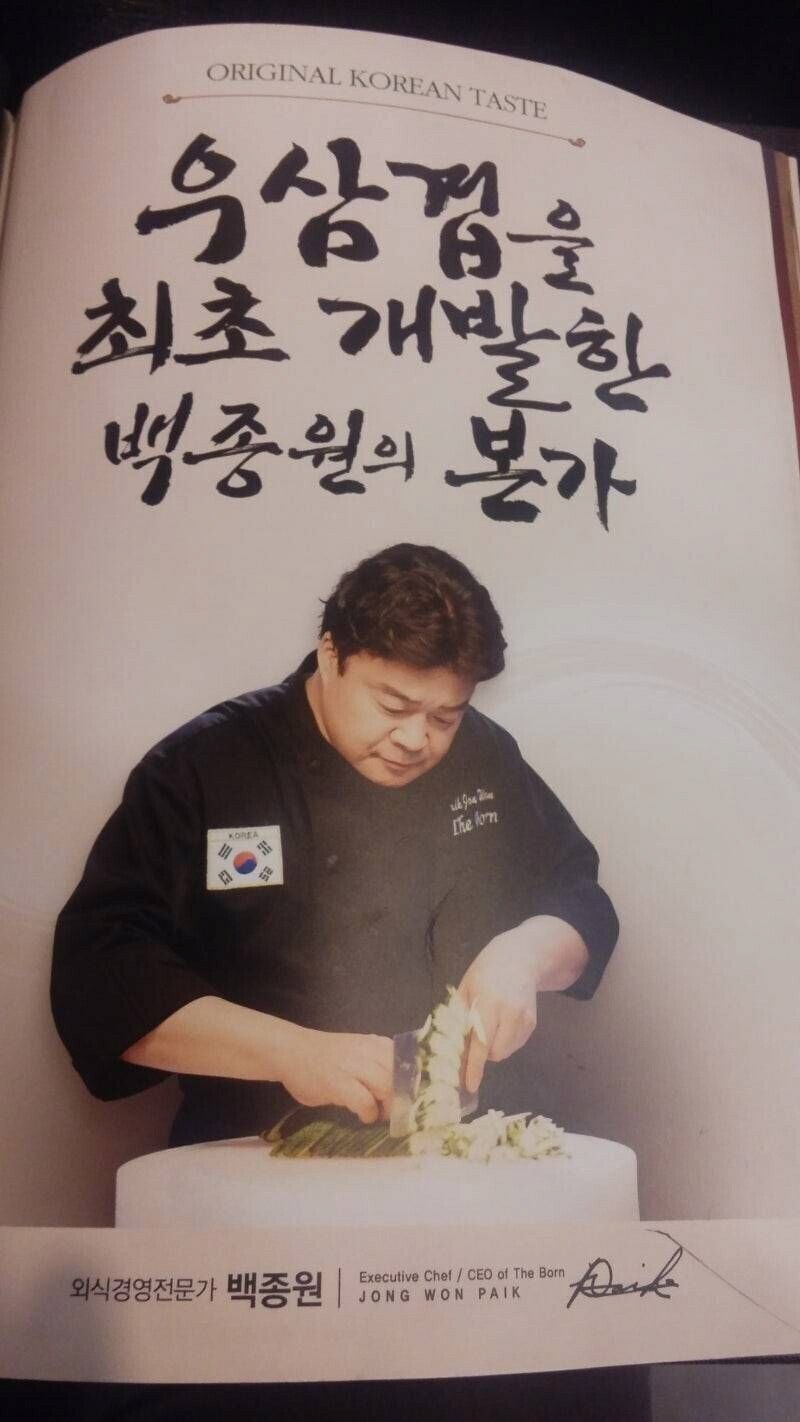 ORIGINAL KOREAN TASTE
우삼겹을
최초 개발한
백종원의 본가
KOREA
The Born
외식경영전문가 백종원
Executive Chef / CEO of The Born
JONG WON PAIK
Paik